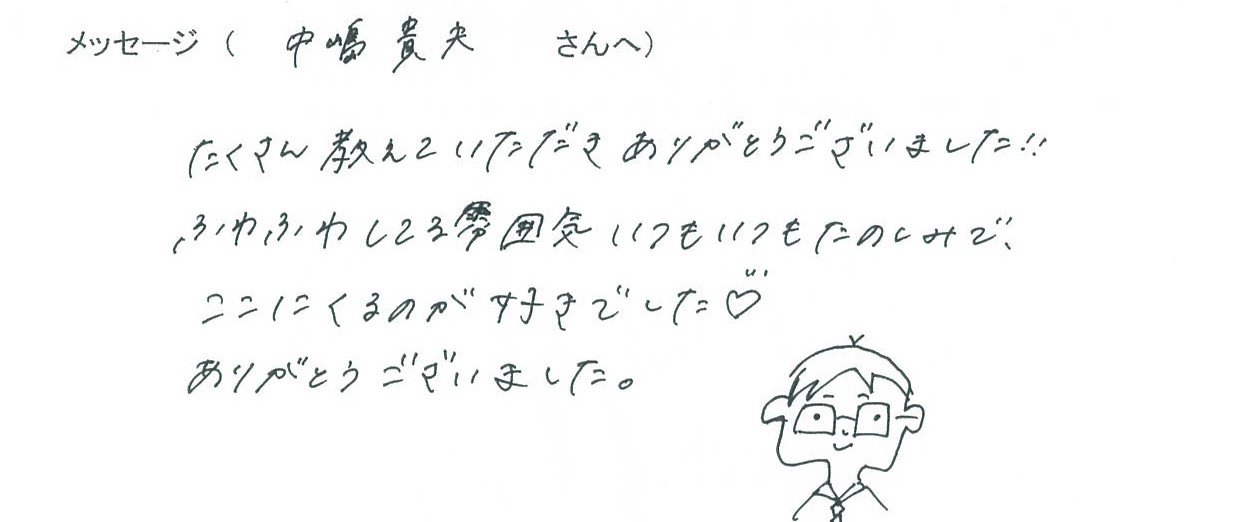 メッセージ（ 中嶋 貴央 さんへ）
たくさん教えていただきありがとうございました!!
ふわふわしてる雰囲気いつもいつもたのしみで、
ここにくるのが好きでした♡
ありがとうございました。